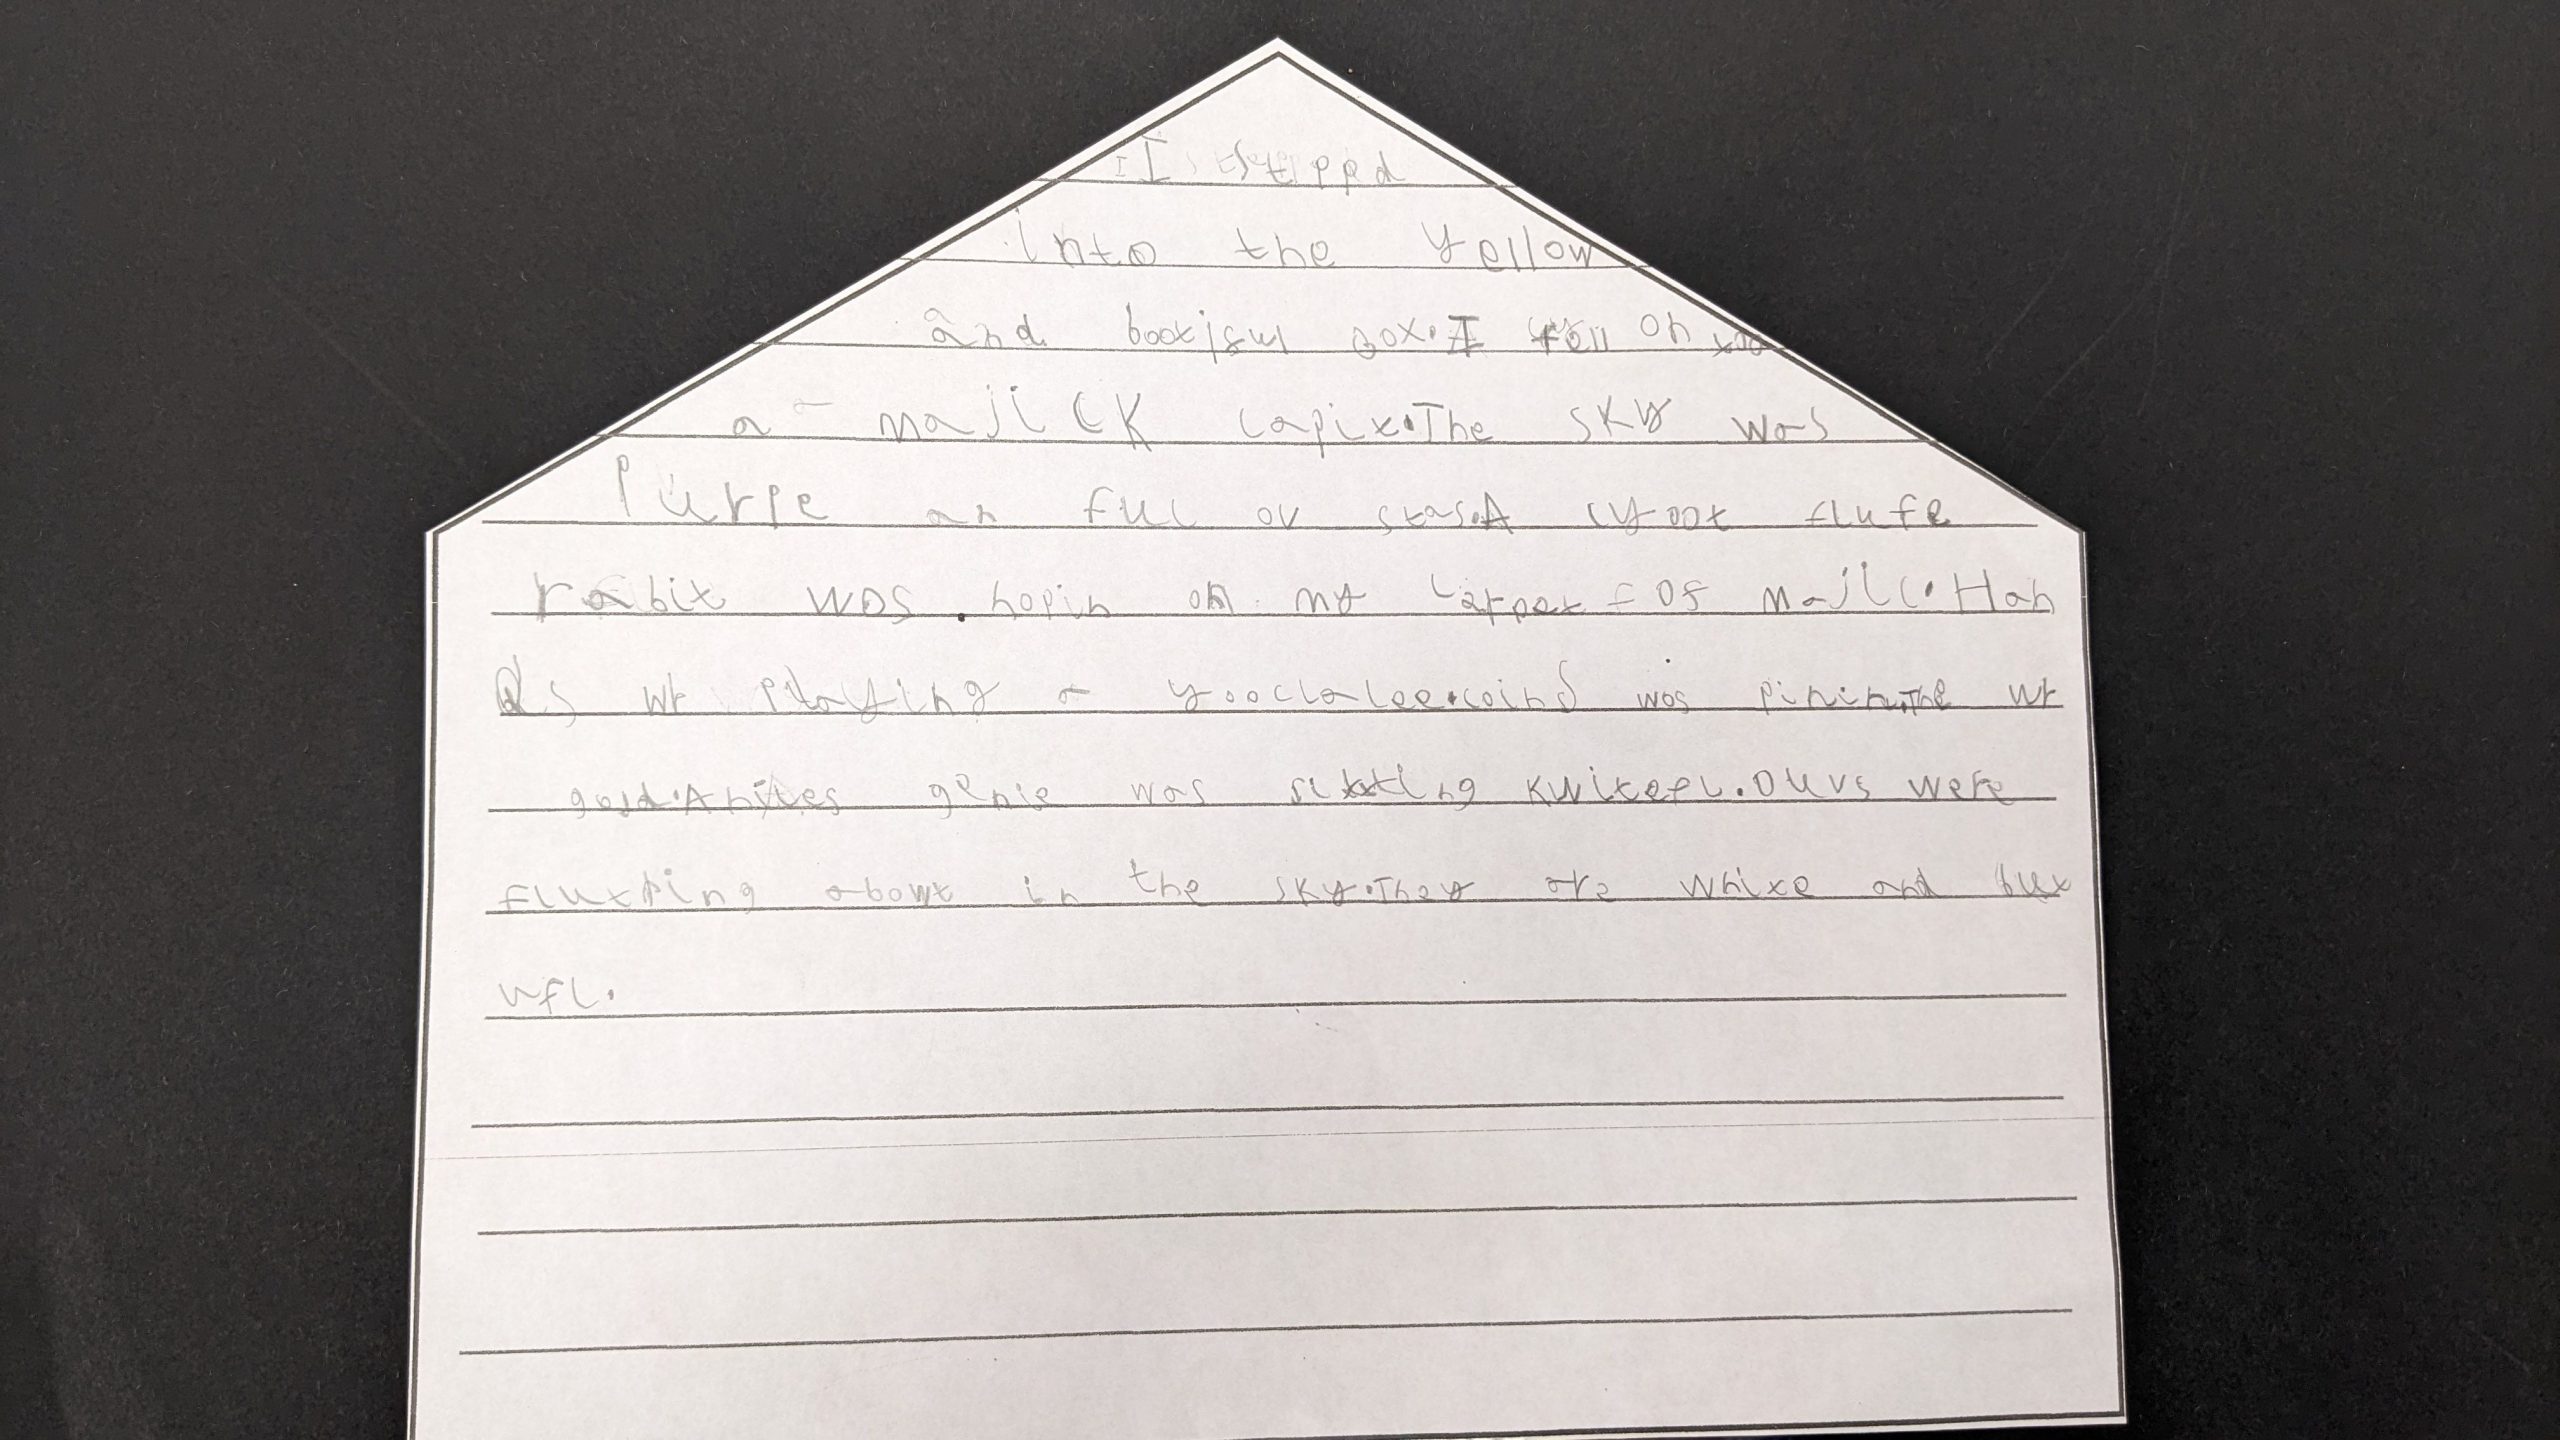 I stepped
into the yellow
and bootjful box. I fell on
a majick capit. The sky was
Purpe an ful ov stas. A cyoot flufe
rabit was hopin on my carpet of majic. Han
ds wr playing a yooclalee. coins was pinin. The wr
gold. A nixes genie was sitting kwitefl. Duvs were
fluttring abowt in the sky. They are white and but
ufl.